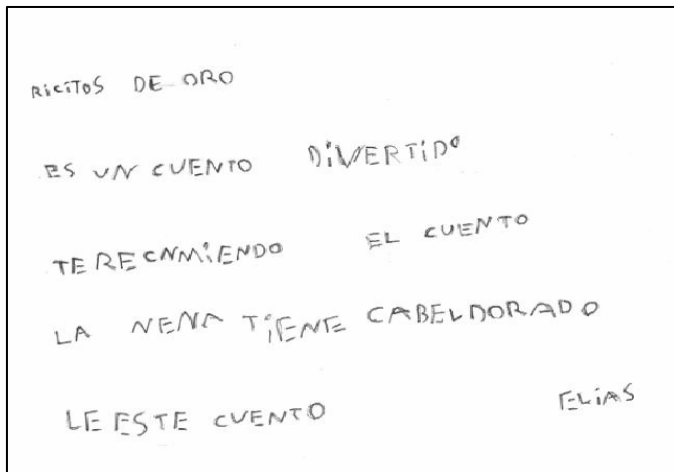 RICITOS DE ORO
ES UN CUENTO DIVERTIDO
TE RECNMIENDO EL CUENTO
LA NENA TIENE CABELDORADO
LE ESTE CUENTO ELIAS